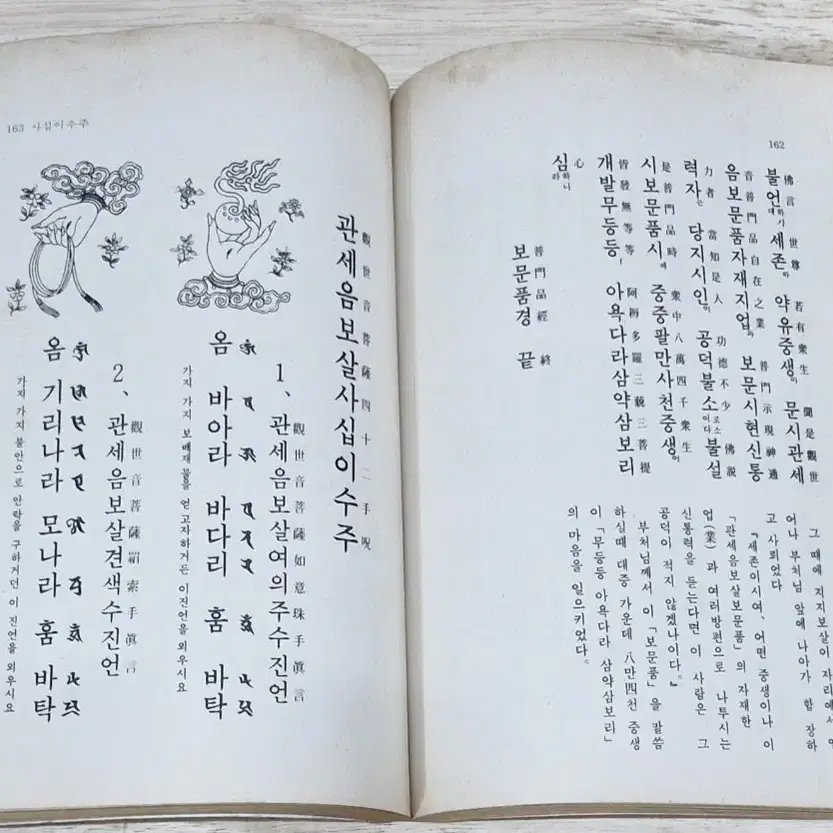 162
佛言 世尊 若有衆生 聞是觀世
불언하기 세존하 약유중생이 문시관세
音普門品自在之業 普門示現神通
음보문품자재지업과 보문시현신통
力者 當知是人 功德不少 佛說
력자는 당지시인이 공덕불소이다 불설
是普門品時 衆中八萬四千衆生
시보문품시에 중중팔만사천중생이
皆發無等等 阿耨多羅三藐三菩提
개발무등등 아욕다라삼약삼보리
心
심하니라
普門品經 終
보문품경 끝
그 때에 지지보살이 자리에서
어나 부처님 앞에 나아가 합장하
고 사뢰었다
『세존이시여, 어떤 중생이나 이
「관세음보살보문품」의 자재한
업(業)과 여러방편으로 나투시는
신통력을 듣는다면 이 사람은 그
공덕이 적지 않겠나이다.』
부처님께서 이 「보문품」을 말씀
하실때 대중 가운데 八만四천 중생
이 「무등등 아욕다라 삼약삼보리」
의 마음을 일으키었다。
163 사십이수주
觀世音菩薩四十二手呪
관세음보살사십이수주
觀世音菩薩如意珠手眞言
1、관세음보살여의주수진언
옴 바아라 바다리 훔 바탁
가지 가지 보배재물을 얻고자하거든 이진언을 외우시요
觀世音菩薩羂索手眞言
2、관세음보살견색수진언
옴 기리나라 모나라 훔 바탁
가지 가지 불안으로 안락을 구하거던 이 진언을 외우시요